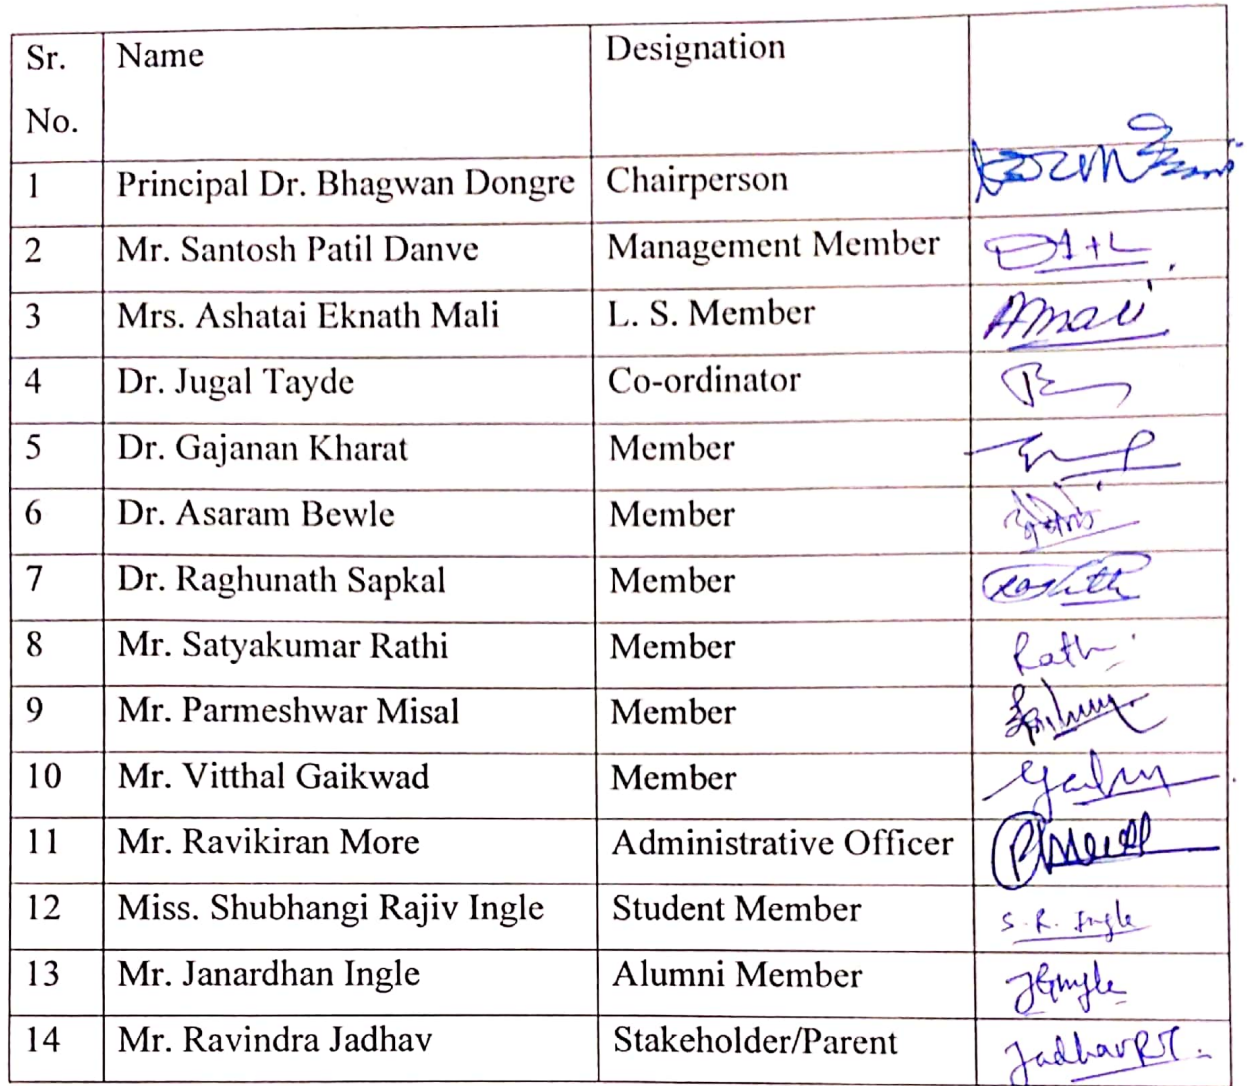 Sr. Name Designation
No.
1 Principal Dr. Bhagwan Dongre Chairperson
2 Mr. Santosh Patil Danve Management Member
3 Mrs. Ashatai Eknath Mali L. S. Member AMali
4 Dr. Jugal Tayde Co-ordinator
5 Dr. Gajanan Kharat Member
6 Dr. Asaram Bewle Member
7 Dr. Raghunath Sapkal Member
8 Mr. Satyakumar Rathi Member Rathi
9 Mr. Parmeshwar Misal Member
10 Mr. Vitthal Gaikwad Member
11 Mr. Ravikiran More Administrative Officer
12 Miss. Shubhangi Rajiv Ingle Student Member S. R. Ingle
13 Mr. Janardhan Ingle Alumni Member
14 Mr. Ravindra Jadhav Stakeholder/Parent Jadhav